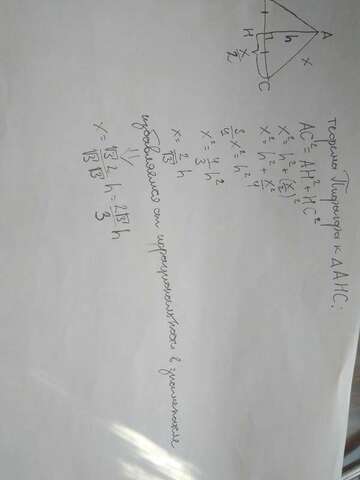 A
h
H
x/2
x
C
теорема Пифагора к ΔAHC:
AC² = AH² + HC²
x² = h² + (x/2)²
x² = h² + x²/4
3/4 x² = h²
x² = 4/3 h²
x = 2/√3 h
избавляемся от иррациональности в знаменателе
x = √3 2/√3 √3 h = 2√3/3 h